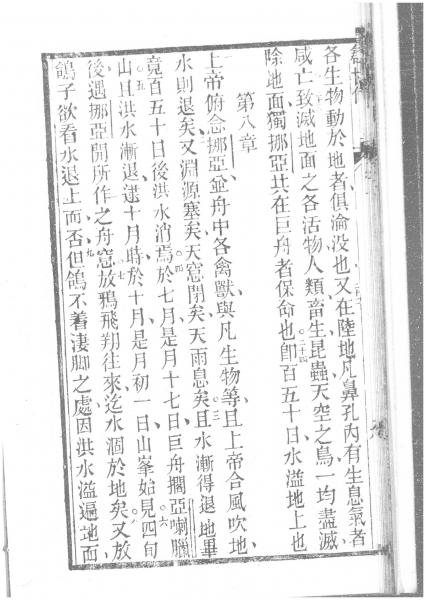 各生物動於地者俱淪没也又在陸地凡鼻孔內有生息氣者
咸亡致滅地面之各活物人類畜生昆蟲天空之鳥一均盡滅
除地面獨挪亞共在巨舟者保命也二十四即百五十日水溢地上也
第八章
一上帝俯念挪亞並舟中各禽獸與凡生物等且上帝令風吹地
水則退矣二又淵源塞矣天窓閉矣天雨息矣三且水漸得退地畢
竟百五十日後洪水消焉四於七月是月十七日巨舟擱亞喇臘
山五且洪水漸退逮十月時於十月是月初一日山峯始見六四旬
後遇挪亞開所作之舟窓七放鴉飛翔往來迄水涸於地矣八又放
鴿子欲看水退上而否九但鴿不着淒脚之處因洪水溢遍地面